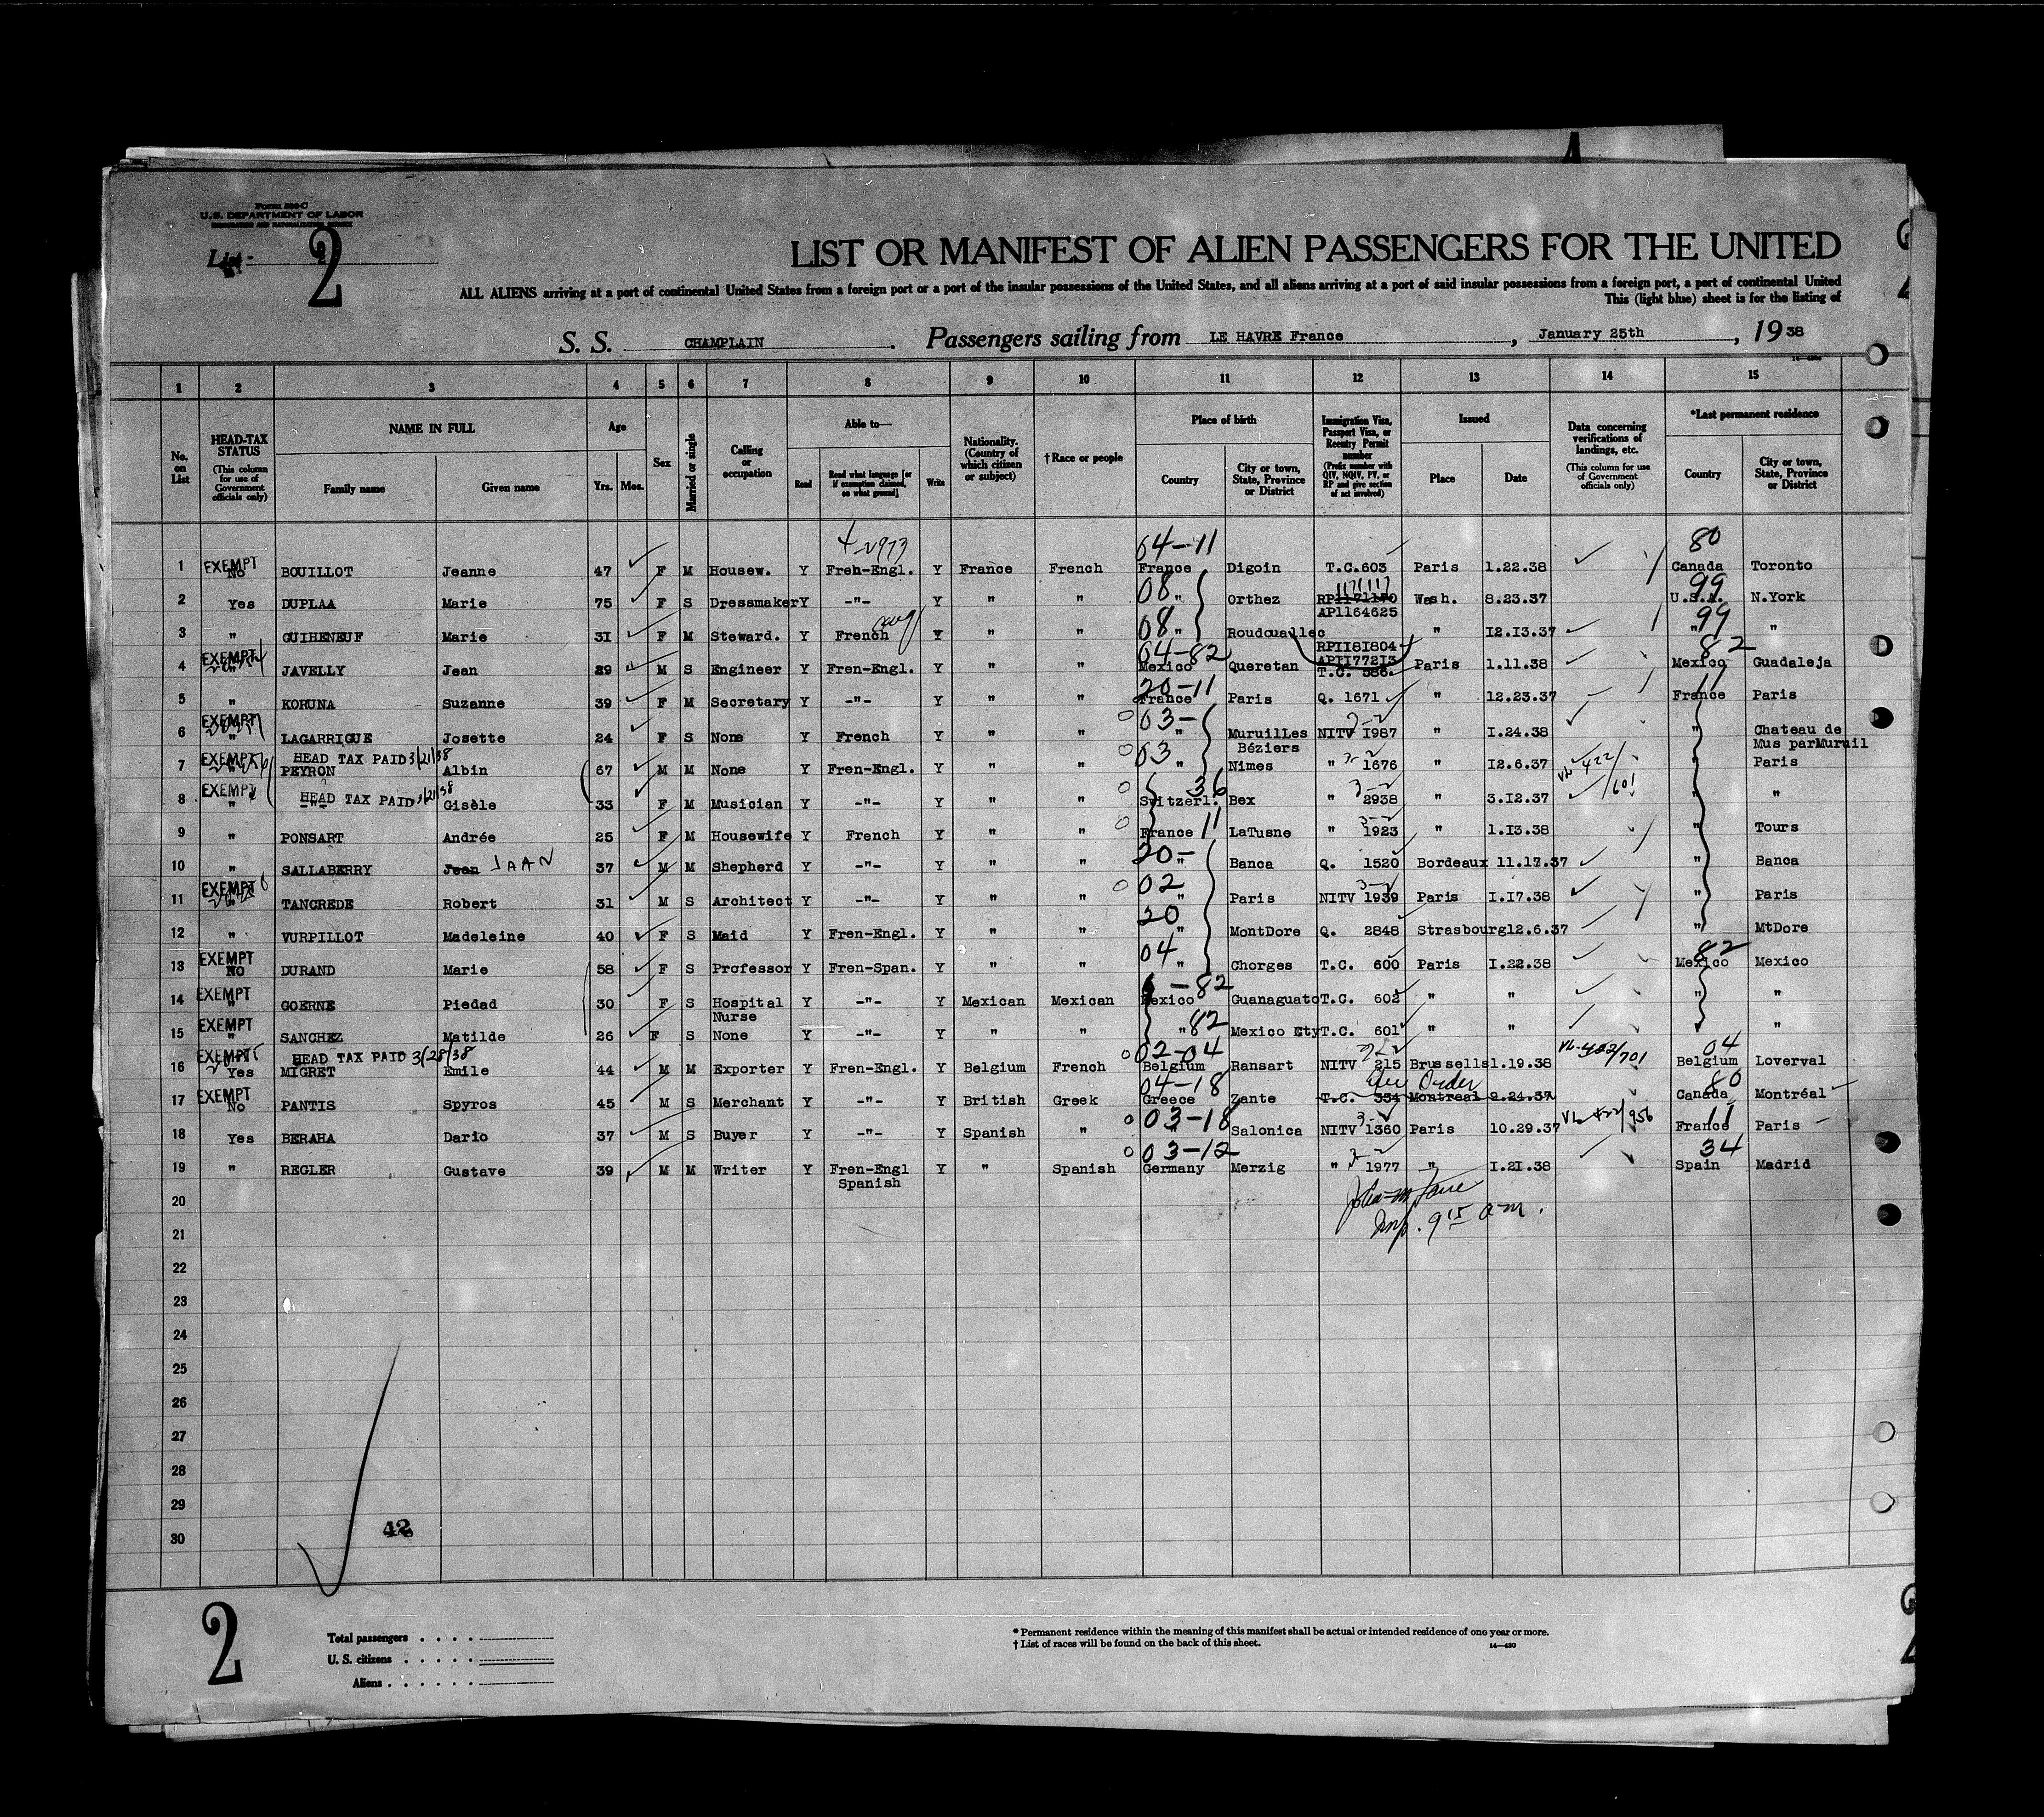 Form 500 C
U.S. DEPARTMENT OF LABOR
IMMIGRATION AND NATURALIZATION SERVICE
List 2
LIST OR MANIFEST OF ALIEN PASSENGERS FOR THE UNITED
ALL ALIENS arriving at a port of continental United States from a foreign port or a port of the insular possessions of the United States, and all aliens arriving at a port of said insular possessions from a foreign port, a port of continental United
This (light blue) sheet is for the listing of
S. S. CHAMPLAIN. Passengers sailing from LE HAVRE France, January 25th, 1938
1 2 3 4 5 6 7 8 9 10 11 12 13 14 15
No. on List
HEAD-TAX STATUS (This column for use of Government officials only)
NAME IN FULL Family name Given name
Age Yrs. Mos.
Sex
Married or single
Calling or occupation
Able to— Read Read what language [or if exemption claimed, on what ground] Write
Nationality. (Country of which citizen or subject)
†Race or people
Place of birth Country City or town, State, Province or District
Immigration Visa, Passport Visa, or Reentry Permit number (Prefix number with QIV, NQIV, PV, or RP and give section of act involved)
Issued Place Date
Data concerning verifications of landings, etc. (This column for use of Government officials only)
*Last permanent residence Country City or town, State, Province or District
4-2973 64-11 80
1 EXEMPT No BOUILLOT Jeanne 47 F M Housew. Y Freh-Engl. Y France French France Digoin T.C.603 Paris 1.22.38 Canada Toronto
08 99
2 Yes DUPLAA Marie 75 F S Dressmaker Y -"- Y " " " Orthez RP1171170 Wash. 8.23.37 U.S.A. N.York
AP1164625
08 99
3 " GUIHENEUF Marie 31 F M Steward. Y French Y " " " Roudouallec " 12.13.37 " "
RP1181804
AP1177213
04-82 82
4 EXEMPT " JAVELLY Jean 29 M S Engineer Y Fren-Engl. Y " " Mexico Queretan T.C. 586 Paris 1.11.38 Mexico Guadaleja
20-11 11
5 " KORUNA Suzanne 39 F M Secretary Y -"- Y " " France Paris Q. 1671 " 12.23.37 France Paris
03- 3-2
6 EXEMPT " LAGARRIGUE Josette 24 F S None Y French Y " " " MuruilLes Béziers NITV 1987 " 1.24.38 " Chateau de Mus parMuruil
HEAD TAX PAID 3/21/38 03 3-2 422/601
7 EXEMPT " PEYRON Albin 67 M M None Y Fren-Engl. Y " " " Nimes " 1676 " 12.6.37 " Paris
HEAD TAX PAID 3/21/38 36 3-2
8 EXEMPT " -"- Gisèle 33 F M Musician Y -"- Y " " Switzerl. Bex " 2938 " 3.12.37 " "
11 3-2
9 " PONSART Andrée 25 F M Housewife Y French Y " " France LaTusne " 1923 " 1.13.38 " Tours
20-
10 " SALLABERRY Jean JAAN 37 M M Shepherd Y -"- Y " " " Banca Q. 1520 Bordeaux 11.17.37 " Banca
02 3-2
11 EXEMPT " TANCREDE Robert 31 M S Architect Y -"- Y " " " Paris NITV 1939 Paris 1.17.38 " Paris
20
12 " VURPILLOT Madeleine 40 F S Maid Y Fren-Engl. Y " " " MontDore Q. 2848 Strasbourg 12.6.37 " MtDore
04 82
13 EXEMPT NO DURAND Marie 58 F S Professor Y Fren-Span. Y " " " Chorges T.C. 600 Paris 1.22.38 Mexico Mexico
-82
14 EXEMPT " GOERNE Piedad 30 F S Hospital Nurse Y -"- Y Mexican Mexican Mexico Guanaguato T.C. 602 " " " "
82
15 EXEMPT " SANCHEZ Matilde 26 F S None Y -"- Y " " " Mexico Cty T.C. 601 " " " "
HEAD TAX PAID 3/28/38 02-04 3-2 04
16 EXEMPT Yes MIGRET Emile 44 M M Exporter Y Fren-Engl. Y Belgium French Belgium Ransart NITV 215 Brussels 1.19.38 Belgium Loverval
04-18 80
17 EXEMPT No PANTIS Spyros 45 M S Merchant Y -"- Y British Greek Greece Zante T.C. 334 Montreal 9.24.37 Canada Montréal
03-18 3-2 11
18 Yes BERAHA Dario 37 M S Buyer Y -"- Y Spanish " " Salonica NITV 1360 Paris 10.29.37 France Paris
03-12 34
19 " REGLER Gustave 39 M M Writer Y Fren-Engl Spanish Y " Spanish Germany Merzig " 1977 " 1.21.38 Spain Madrid
20
Insp. 9 15 a-m.
21
22
23
24
25
26
27
28
29
30
42
2
Total passengers
U. S. citizens
Aliens
* Permanent residence within the meaning of this manifest shall be actual or intended residence of one year or more.
† List of races will be found on the back of this sheet.
14—430